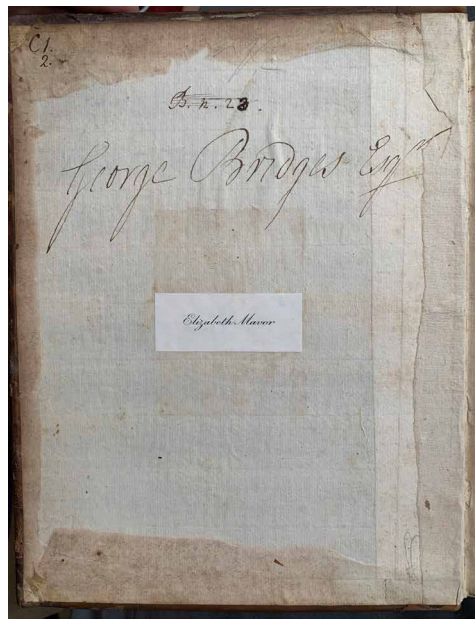 C1.
2.
B. n. 23.
George Bridges Esqr
Elizabeth Mavor